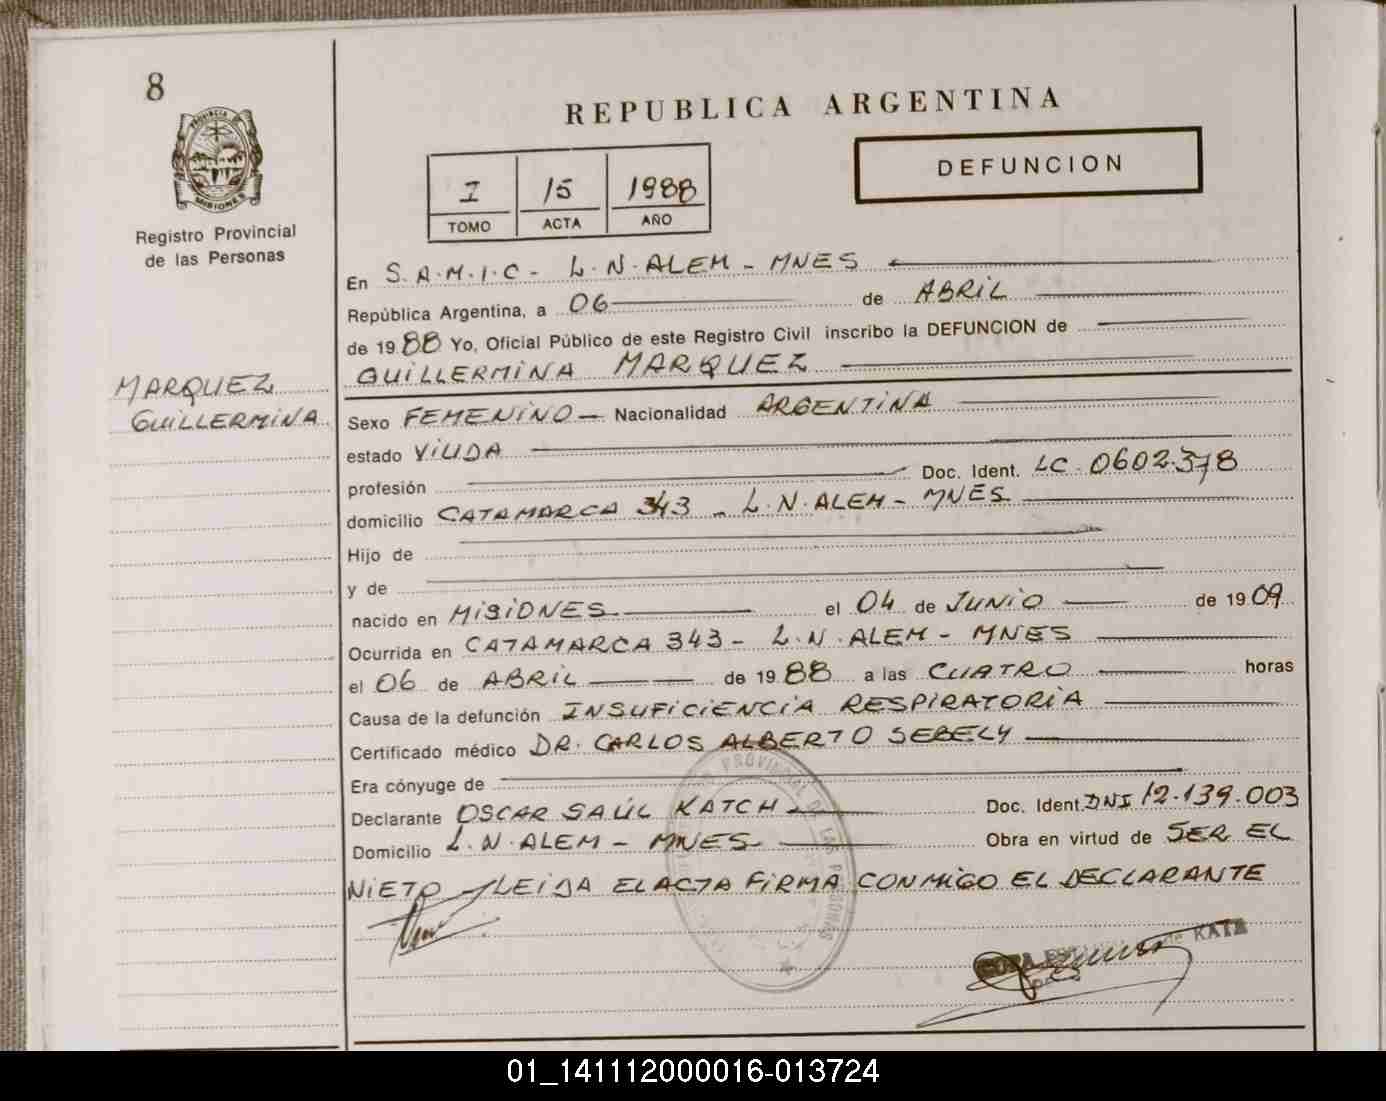 8
REPUBLICA ARGENTINA
PROVINCIA DE
MISIONES
Registro Provincial
de las Personas
I 15 1988
TOMO ACTA AÑO
DEFUNCION
En S.A.M.I.C - L.N.ALEM - MNES
República Argentina, a 06 de ABRIL
de 1988 Yo, Oficial Público de este Registro Civil inscribo la DEFUNCION de
GUILLERMINA MARQUEZ
MARQUEZ
GUILLERMINA
Sexo FEMENINO - Nacionalidad ARGENTINA
estado VIUDA
profesión Doc. Ident. LC - 0602.378
domicilio CATAMARCA 343 - L.N.ALEM - MNES
Hijo de
y de
nacido en MISIONES el 04 de JUNIO de 1909
Ocurrida en CATAMARCA 343 - L.N.ALEM - MNES
el 06 de ABRIL de 1988 a las CUATRO horas
Causa de la defunción INSUFICIENCIA RESPIRATORIA
Certificado médico DR. CARLOS ALBERTO SEBELY
Era cónyuge de
Declarante OSCAR SAÚL KATCH Doc. Ident. DNI 12.139.003
Domicilio L.N.ALEM - MNES Obra en virtud de SER EL
NIETO - LEIDA EL ACTA FIRMA CONMIGO EL DECLARANTE
PROVINCIAL DE LAS PERSONAS
de KATZ
01_141112000016-013724